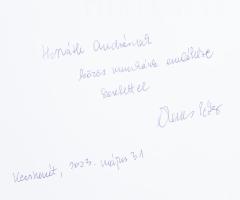 Horváth Andrásnak
közös munkáink emlékére
szeretettel
Péter
Kecskemét, 2023. május 31